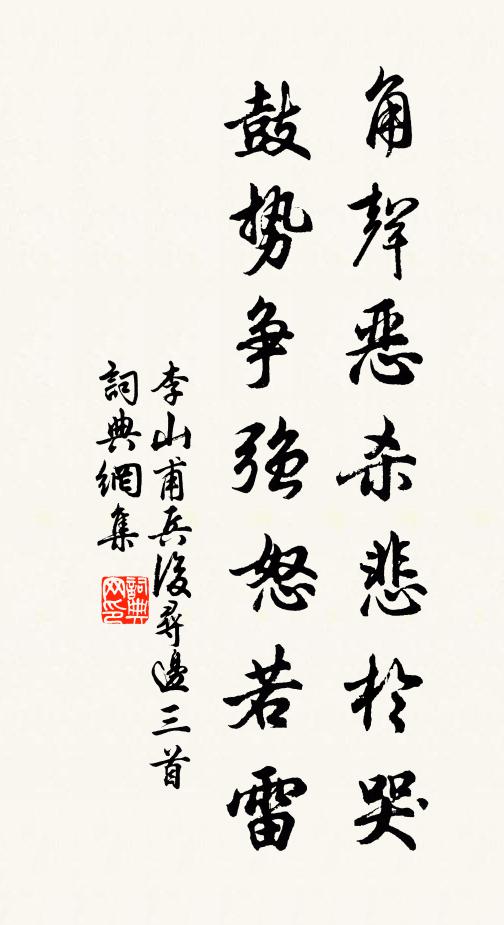 角聲惡杀悲於哭
鼓勢争強怒若雷
李山甫兵後尋邊三首
詞典網集
詞典網印